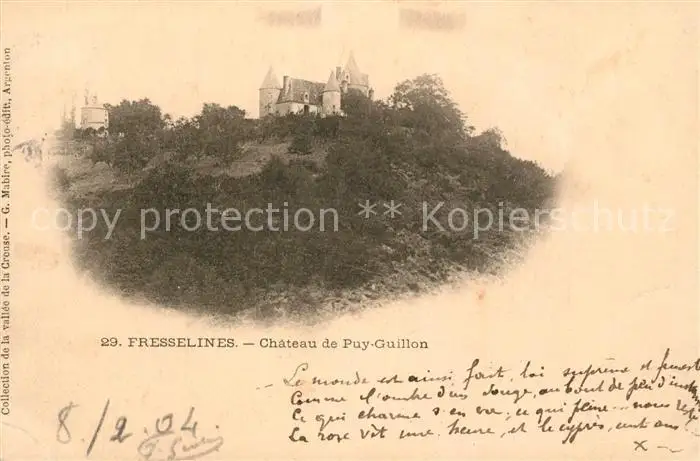 copy protection ** Kopierschutz
Collection de la vallée de la Creuse. — G. Mabire, photo-édit., Argenton
29. FRESSELINES. — Château de Puy-Guillon
Le monde est ainsi fait, loi suprême et funest
Comme l'ombre d'un songe, au bout de peu d'inst
Ce qui charme s'en va, ce qui peine... nous reste
La rose vit une heure, et le cyprès, cent ans...
X
8/2.04